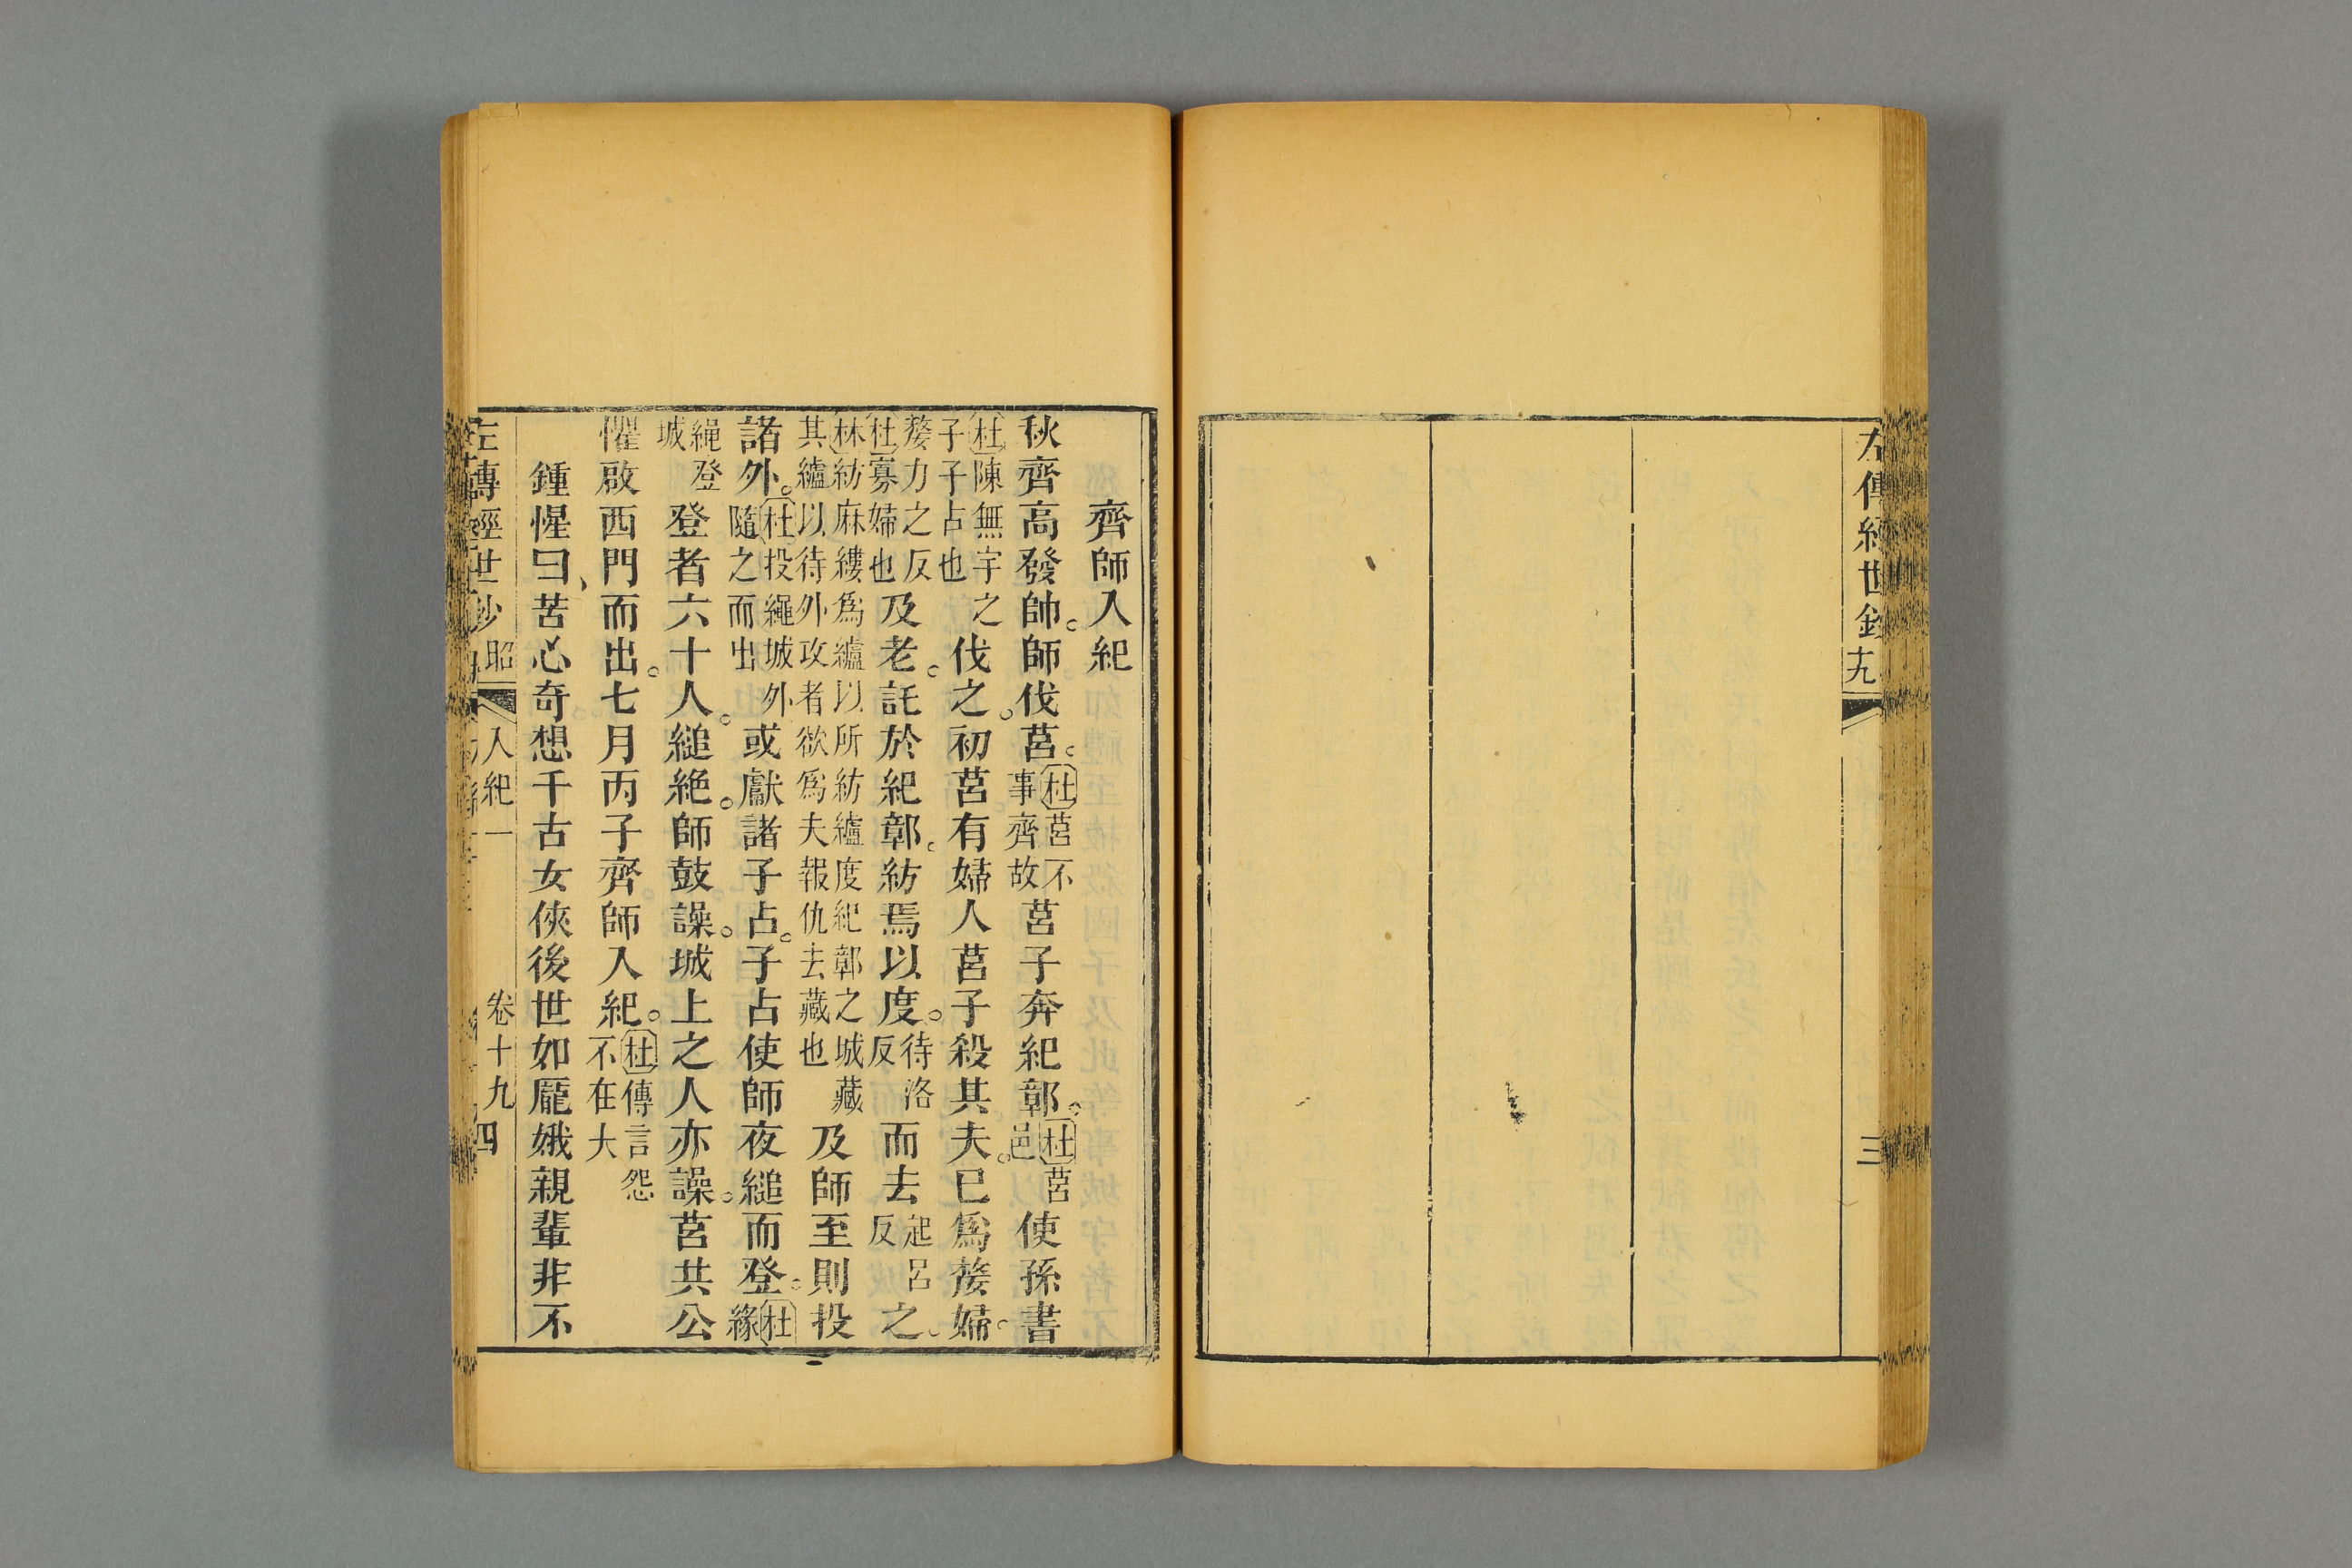 左傳經世鈔 十九 三
齊師入紀
秋齊高發帥。師伐莒。杜莒不事齊故莒子奔紀鄣。杜莒邑使孫書
杜陳無宇之子子占也伐之。初莒有婦人莒子殺其夫。已爲嫠婦。
嫠力之反杜寡婦也及老。託於紀鄣。紡焉以度。待洛反而去起呂反之。
林紡麻縷爲纑以所紡纑度紀鄣之城藏其纑以待外攻者欲爲夫報仇去藏也及師至則投
諸外。杜投繩城外隨之而出或獻諸子占。子占使師夜縋而登。杜緣
繩登城登者六十人。縋絶。師鼓譟。城上之人亦譟。莒共公
懼啟西門而出。七月丙子齊師入紀。杜傳言怨不在大
鍾惺曰、苦心奇想千古女俠後世如龎娥親輩非不
左傳經世鈔 昭 入紀一 卷十九 四